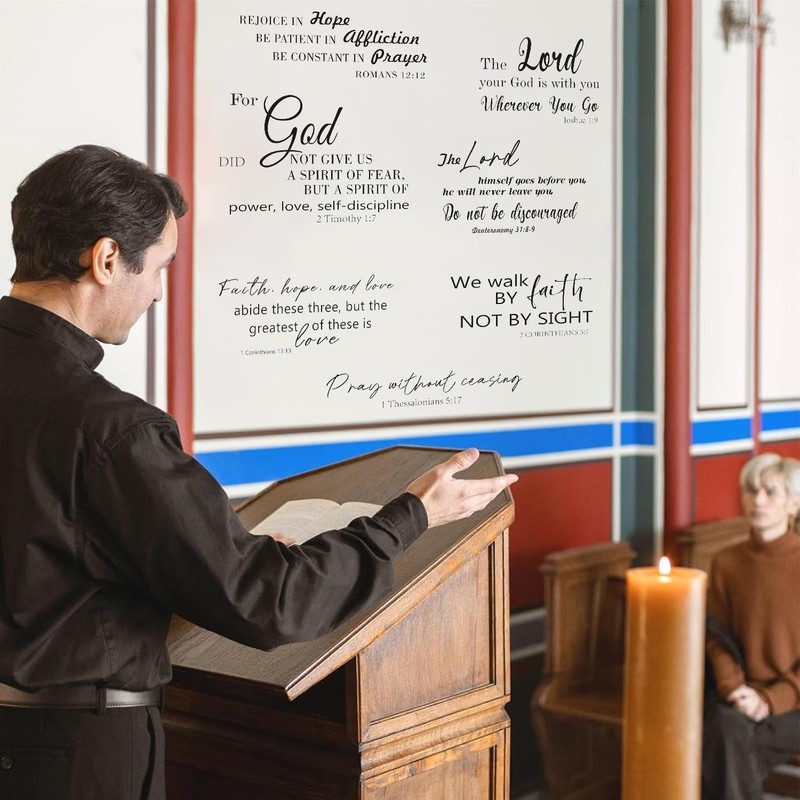 REJOICE IN Hope
BE PATIENT IN Affliction
BE CONSTANT IN Prayer
ROMANS 12:12
The Lord
your God is with you
Wherever You Go
Joshua 1:9
For God
DID NOT GIVE US
A SPIRIT OF FEAR,
BUT A SPIRIT OF
power, love, self-discipline
2 Timothy 1:7
The Lord
himself goes before you,
he will never leave you,
Do not be discouraged
Deuteronomy 31:8-9
Faith, hope, and love
abide these three, but the
greatest of these is
love
1 Corinthians 13:13
We walk
BY faith
NOT BY SIGHT
2 CORINTHIANS 5:7
Pray without ceasing
1 Thessalonians 5:17